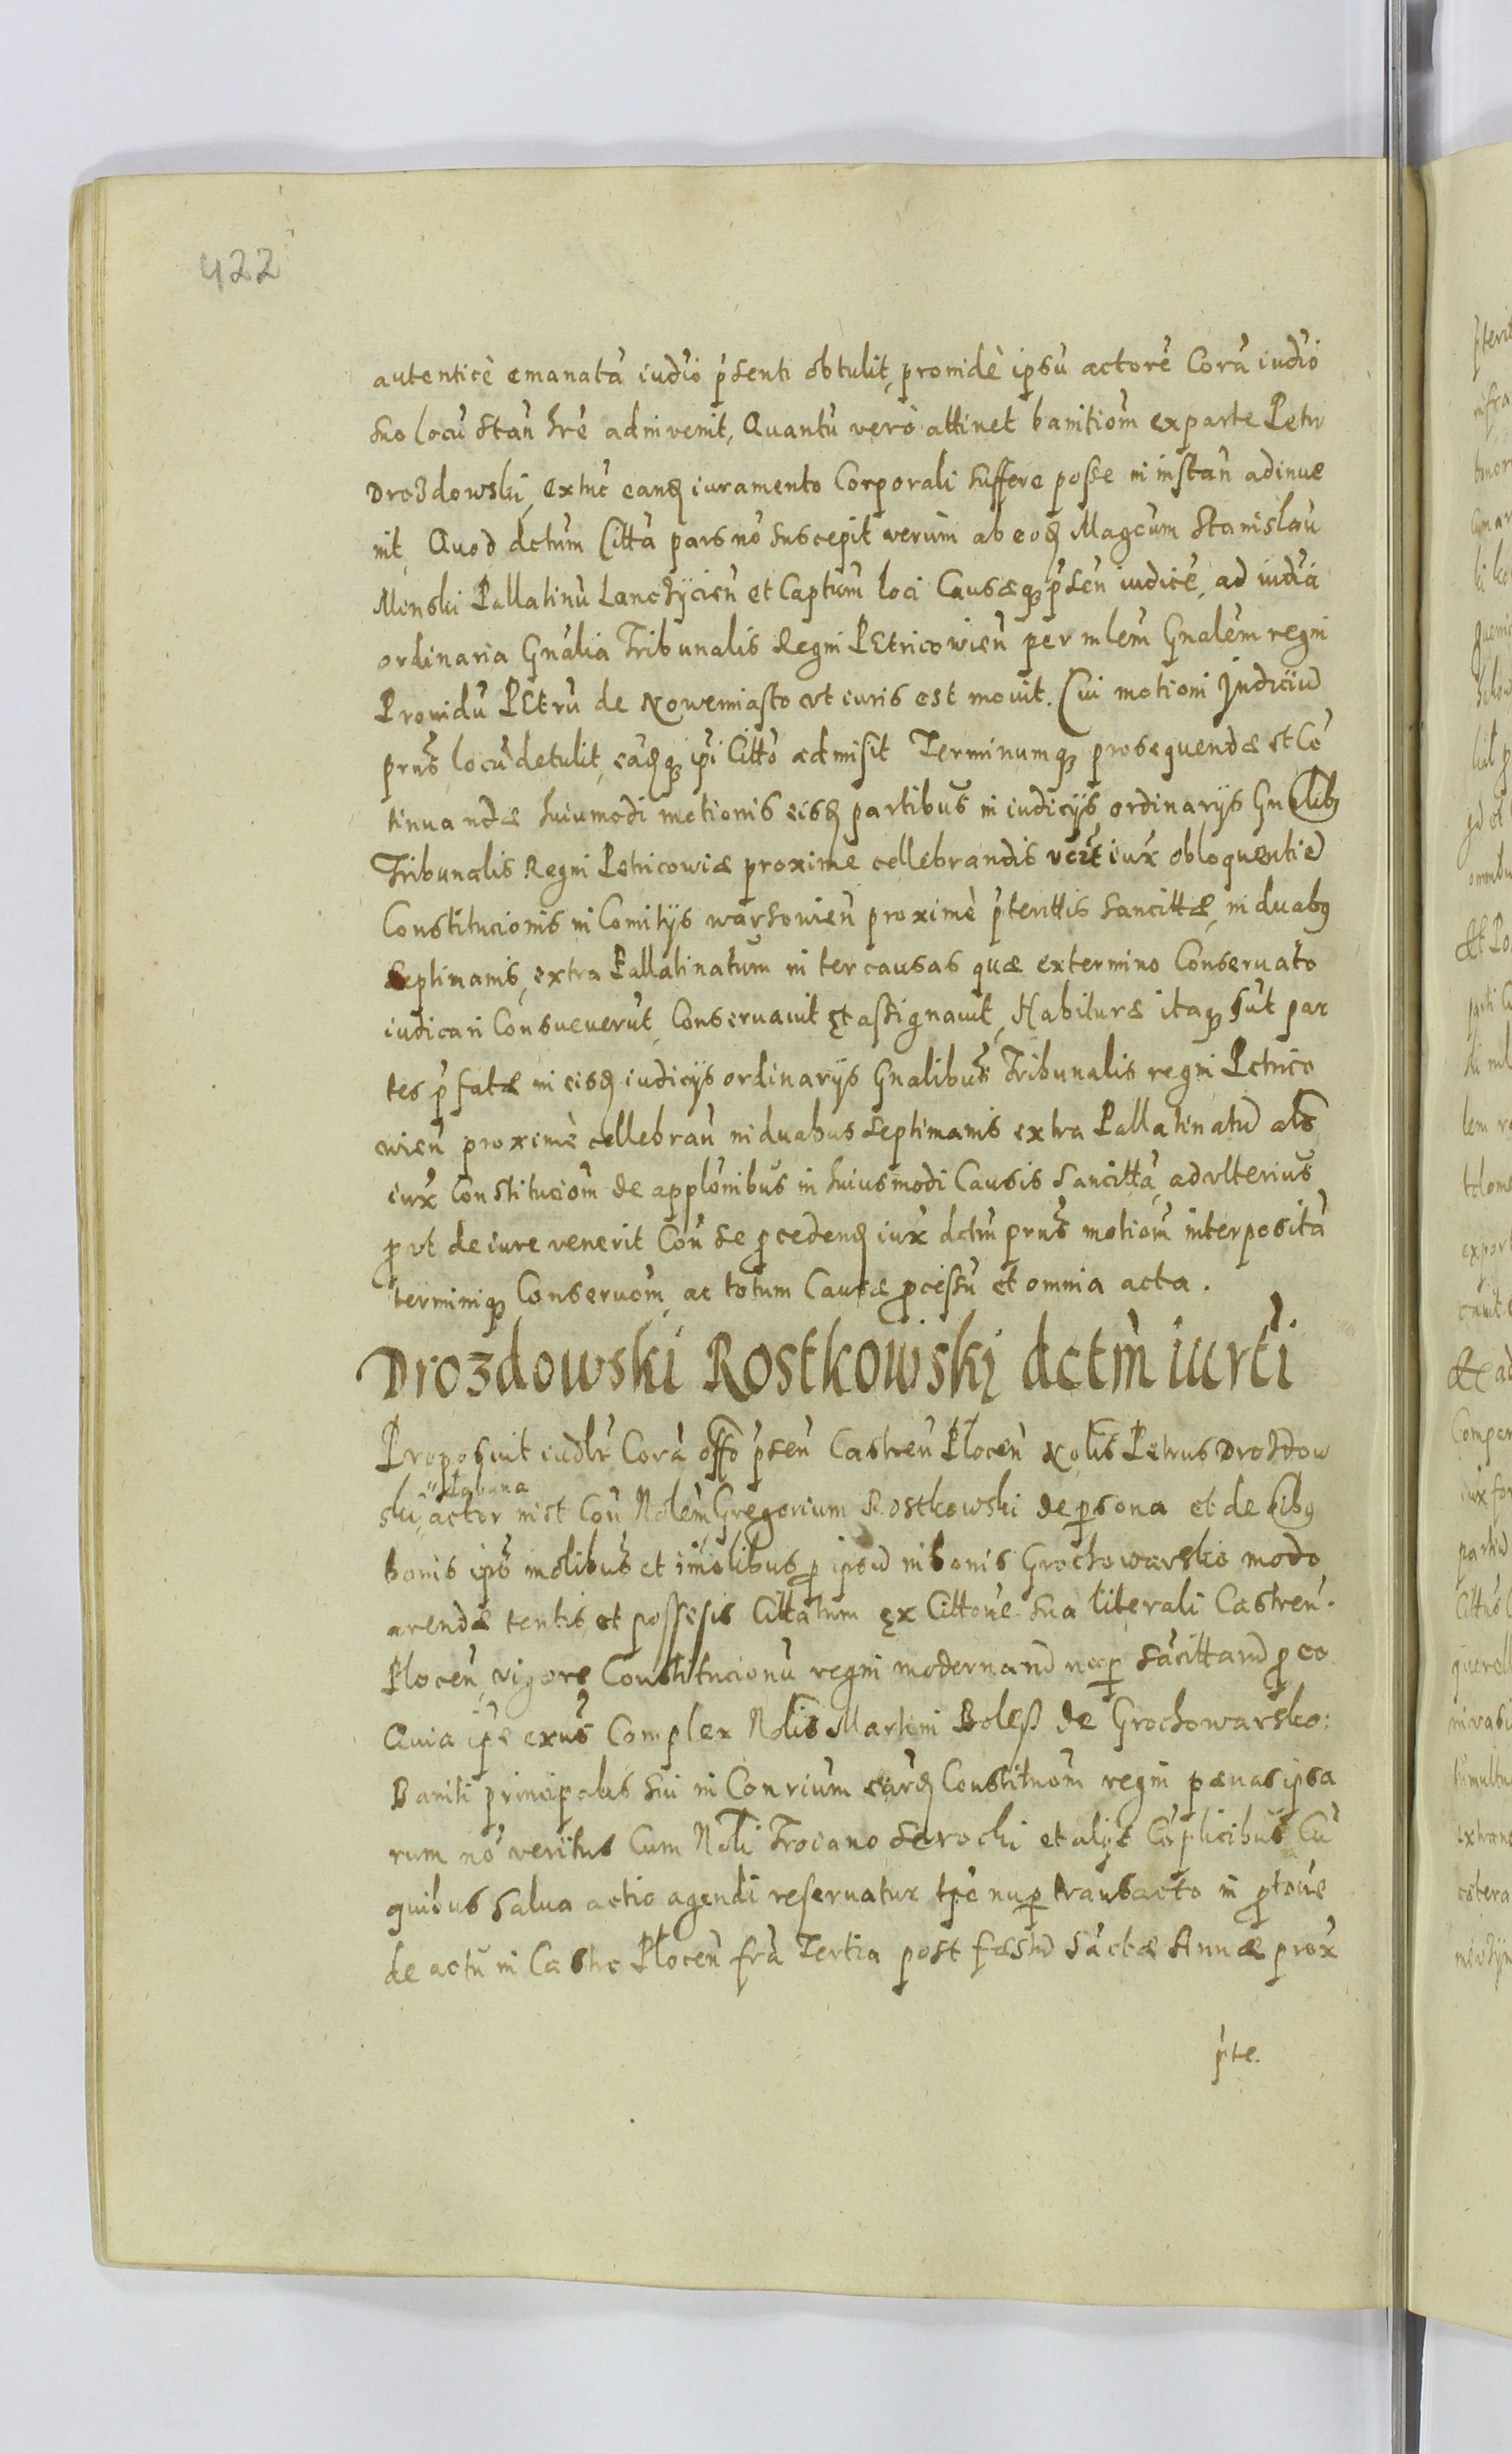 422
autenticè emanatā iudio p̄senti obtulit, prouidè ipsū actorē Corā iudio
suo locū stan̄ hrē adinvenit, Quantū verò attinet banitiom̄ ex parte Petri
Drozdowski, extūc eand iuramento Corporali suffere posse in instan̄ adinve
nit, Quod dctum Citta pars nō suscepit verùm ab eod Magcum Stanislaū
Minski Pallatinū Lanczÿcien̄ et Captum̄ loci Causaeq p̄sen̄ iudicē, ad iudia
ordinaria Gnalia Tribunalis Regni PEtricowien̄ per mlem̄ Gnalem̄ regni
Prouidū PEtrū de Nowemiasto vt iuris est mouit. Cui motioni Judiciū
prns̄ locū detulit, eandq ipi Citto admisit Terminumq prosequendae et Cō
tinuandae huiumodi motionis eisd partibus in iudicÿs ordinarÿs Gnalibq
Tribunalis Regni Petricowiae proxime cellebrandis vert iux obloquentiā
Constitucionis in Comitÿs warsowien̄ proximè p̄terittis sancittae, in duabq
septinanis, extra Pallatinatum in ter causas quae extermino Conseruato
iudicari Consueuerūt, Conseruauit et assignauit, Habiturae itaq sūt par
tes p̄fatae in eisd iudicÿs ordinarÿs Gnalibus Tribunalis regni Petrico
wien̄ proximè cellebran̄ in duabus septimanis extra Pallatinatū als
iux Constituciom̄ de applōnibus in huiusmodi Causis Sancittā, ad vlterius
p vt de iure venerit Con̄ se pcedend iux dctm prns̄ motiom̄ interpositā
terminiq Conseruom̄, ac totum Causae pcessū et omnia acta.
Drozdowski Rostkowski dctm̄ iurti
Proposuit iudlr Corā offo p̄sen̄ Castren̄ Plocen̄ Nolis Petrus Drozdow
ski, actor inst Con̄ Nolem̄ Gregorium Rostkowski de psona et de oibq
bonis ips̄ molibus et imolibus p ipsū in bonis Grochowarsko modo
arendae tentis et possesis Cittatum ex Cittone sua literali Castren̄.
Plocen̄, vigore Constitucionū regni modernarū nup sācittarū p eo
Quia ipe exn̄s Complex Nolis Martini Boless de Grochowarsko:
Baniti principalis sui in Conrium eard Constitnom̄ regni paenas ipsa
rum nō veritus Cum Noli Troiano Serocki et alÿs Cōplicibus Cū
quibus salua actio agendi reseruatur tpe nup transacto in ptone
de actu in Castro Plocen̄ fra Tertia post faestū Sāctae Annae prox
p̄te.